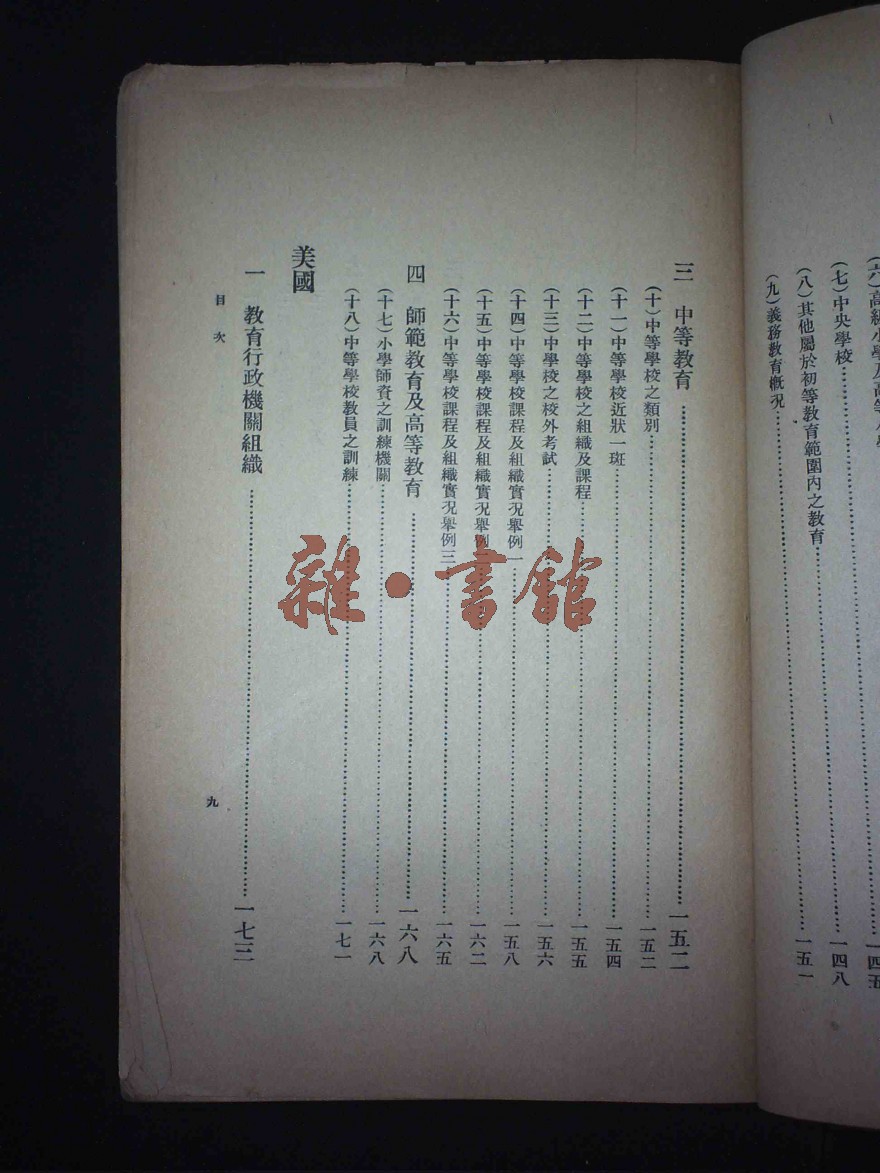 (七)中央學校……一四八
(八)其他屬於初等教育範圍內之教育……一五一
(九)義務教育概况……
三 中等教育……一五二
(十)中等學校之類別……一五二
(十一)中等學校近狀一斑……一五四
(十二)中等學校之組織及課程……一五五
(十三)中學校之校外考試……一五六
(十四)中等學校課程及組織實况舉例一……一五八
(十五)中等學校課程及組織實况舉例……一六二
(十六)中等學校課程及組織實况舉例三……一六五
四 師範教育及高等教育……一六八
(十七)小學師資之訓練機關……一六八
(十八)中等學校教員之訓練……一七一
美國
一 教育行政機關組織……一七三
目次
九
雜·書館